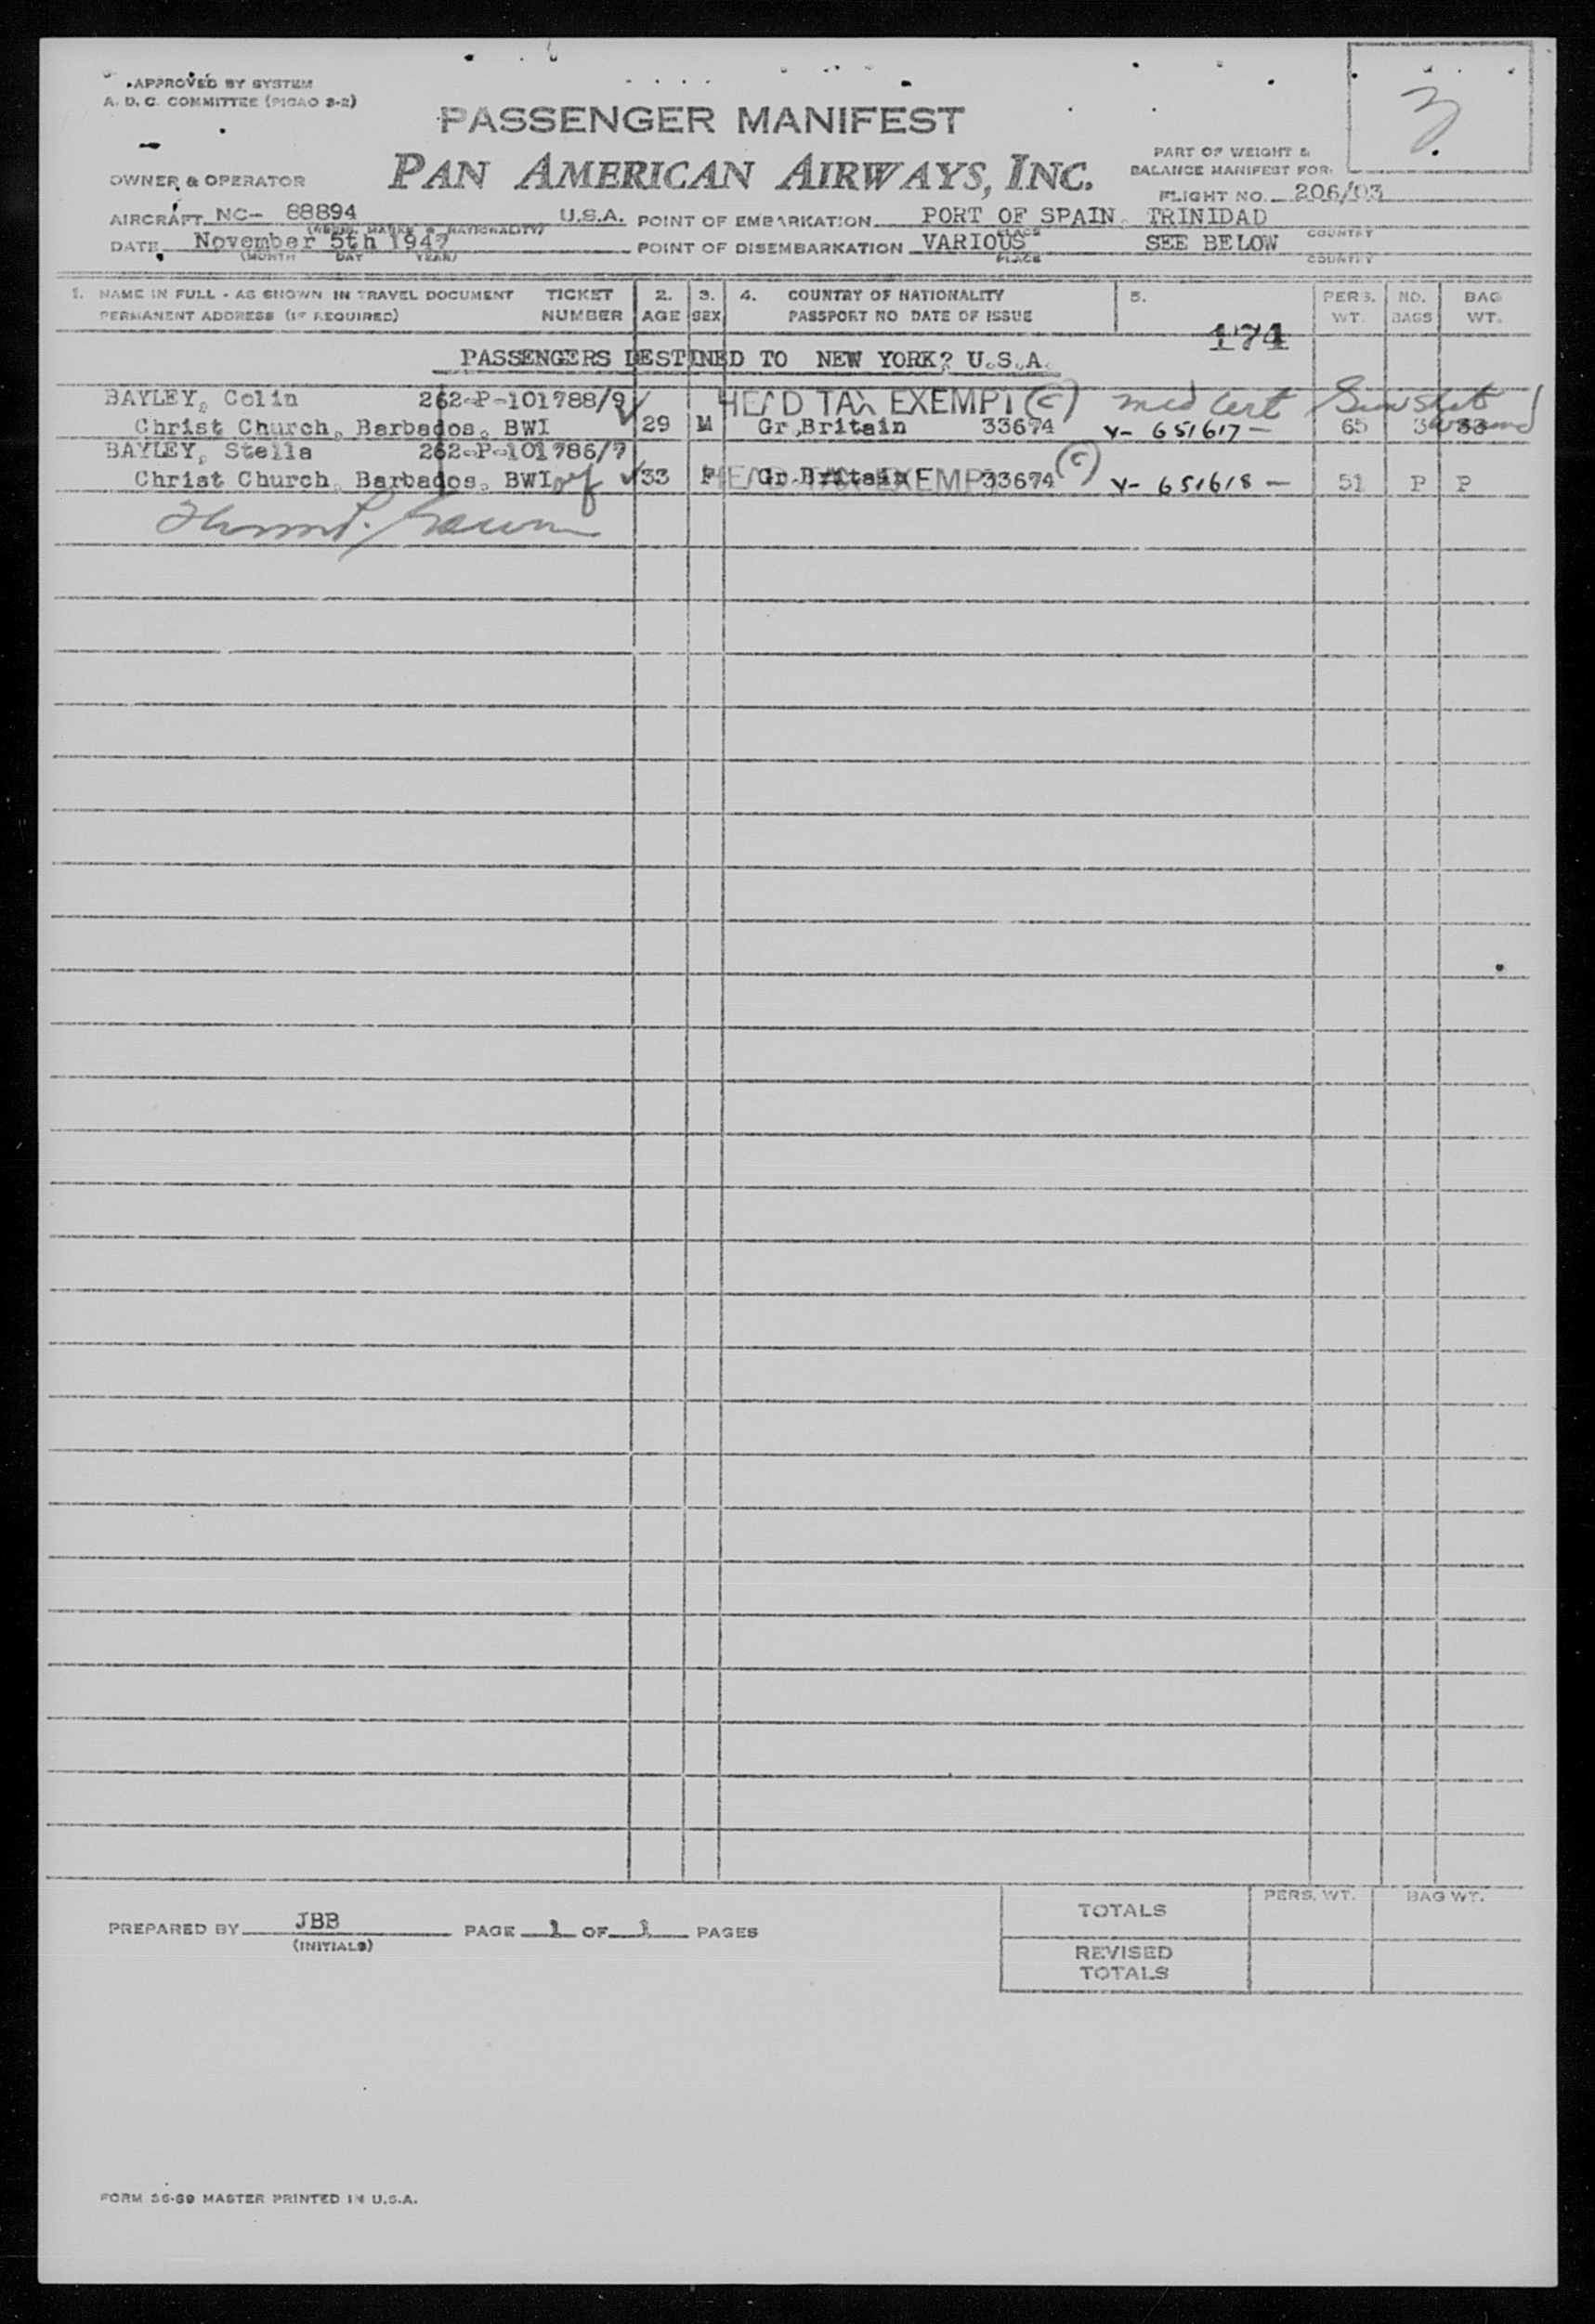 APPROVED BY SYSTEM
A. D. C. COMMITTEE (PICAO 3-2)
3
PASSENGER MANIFEST
PAN AMERICAN AIRWAYS, INC.
PART OF WEIGHT &
BALANCE MANIFEST FOR:
OWNER & OPERATOR
FLIGHT NO. 206/03
AIRCRAFT NC- 88894 U.S.A. POINT OF EMBARKATION PORT OF SPAIN, TRINIDAD
(REGIS. MARKS & NATIONALITY) PLACE COUNTRY
DATE November 5th 1947 POINT OF DISEMBARKATION VARIOUS SEE BELOW
(MONTH DAY YEAR) PLACE COUNTRY
1. NAME IN FULL - AS SHOWN IN TRAVEL DOCUMENT TICKET 2. 3. 4. COUNTRY OF NATIONALITY 5. PERS. NO. BAG
PERMANENT ADDRESS (IF REQUIRED) NUMBER AGE SEX PASSPORT NO DATE OF ISSUE WT. BAGS WT.
174
PASSENGERS DESTINED TO NEW YORK? U.S.A.
BAYLEY, Colin 262-P-101788/9 HEAD TAX EXEMPT (C) med cert Gun shot wound
Christ Church, Barbados, BWI 29 M Gr.Britain 33674 V- 651617 - 65 3 33
BAYLEY, Stella 262-P-101786/7 (C)
Christ Church, Barbados, BWI 33 F HEAD TAX EXEMPT Gr.Britain 33674 V- 651618 - 51 P P
PREPARED BY JBB PAGE 1 OF 1 PAGES
(INITIALS)
PERS. WT. BAG WT.
TOTALS
REVISED
TOTALS
FORM 36-69 MASTER PRINTED IN U.S.A.